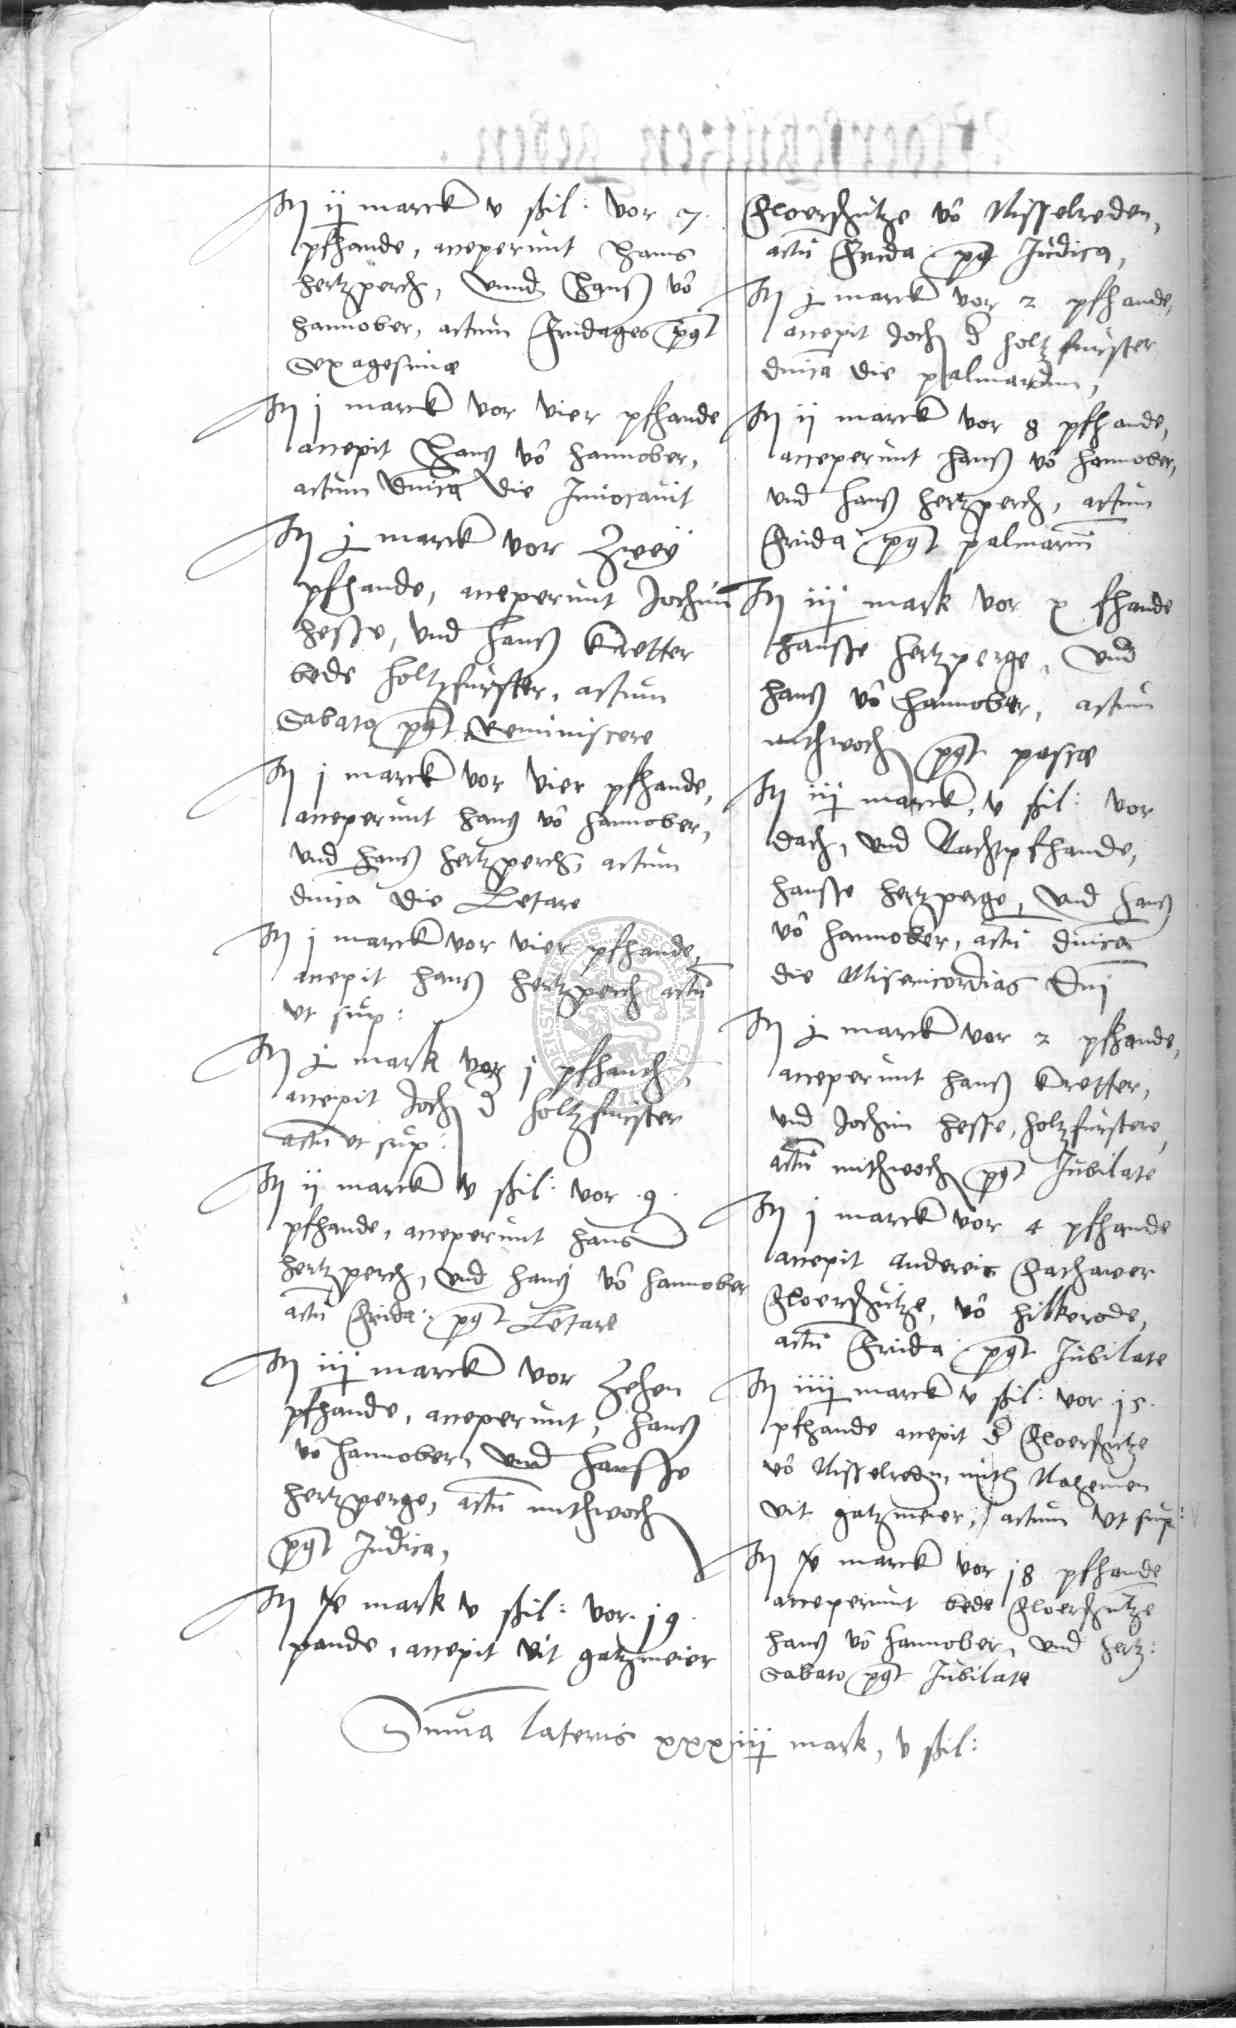 It ij marck v ßil: vor 7.
pfhande, acceperunt Hans
Hertzperch, vnnd Hanß vo
Hannober, actum Fridages post
Sexagesimae
It j marck vor vier pfhande
accepit Hanß vo Hannober,
actum dnica die Inuocauit
It j marck vor Zwey
pfhande, acceperunt Jochim
Hesse, vnd Hanß Kretter
bede Holtzfurster, actum
Sabato post Reminiscere
It j marck vor vier pfhande,
acceperunt Hanß vo Hannober,
vnd Hanß Hertzperch, actum
dnica die Letare
It j marck vor vier pfhande,
accepit Hanß Hertzperch actu
vt sup:
It j mark vor j pfhandt,
accepit Joch d Holtzfurster
actu vt sup:
It ij marck v ßil: vor .9.
pfhande, acceperunt Hans
Hertzperch, vnd Hanß vo Hannober
actu Frida: post Letare
It iij marck vor Zehen
pfhande, acceperunt, Hanß
vo Hannober, vnd Hansse
Hertzperge, actu mithwoch
post Judica,
It v mark v ßil: vor .19.
pande, accepit Vit Gatzmeier
Floerschutze vo Nisselreden,
actu Frida post Judica,
It j marck vor 2 pfhande,
accepit Joch d Holtzfurster
dnica die palmarum,
It ij marck vor 8 pfhande,
acceperunt Hanß vo Hannober,
vnd Hanß Hertzperch, actum
Frida post palmarum
It iij mark vor x fhande
Hansse Hertzperge, vnd
Hanß vo Hannober, actum
mithwoch post pasce
It iij marck, v ßil: vor
dach, vnd Nachtpfhande,
Hansse Hertzperge, vnd Hanß
vo Hannober, actu dnica
die Misericordias Dni
It j marck vor 2 pfhande,
acceperunt Hanß Kretter,
vnd Jochim Hesse, Holtzfurstere,
actu mithwoch post Jubilate
It j marck vor 4 pfhande
accepit Andereis
Floerschutze, vo Hilkerode,
actu Frida post Jubilate
It iiij marck v ßil: vor 15.
pfhande accepit d Floerschutze
vo Nisselredn, mith Nahemen
Vit Gatzmeier, actum vt sup:
It v marck vor 18 pfhande
acceperunt bede Floerschutze
Hanß vo Hannober, vnd Hertz:
Sabato post Jubilate
Suma lateris xxxiiij mark, v ßil: